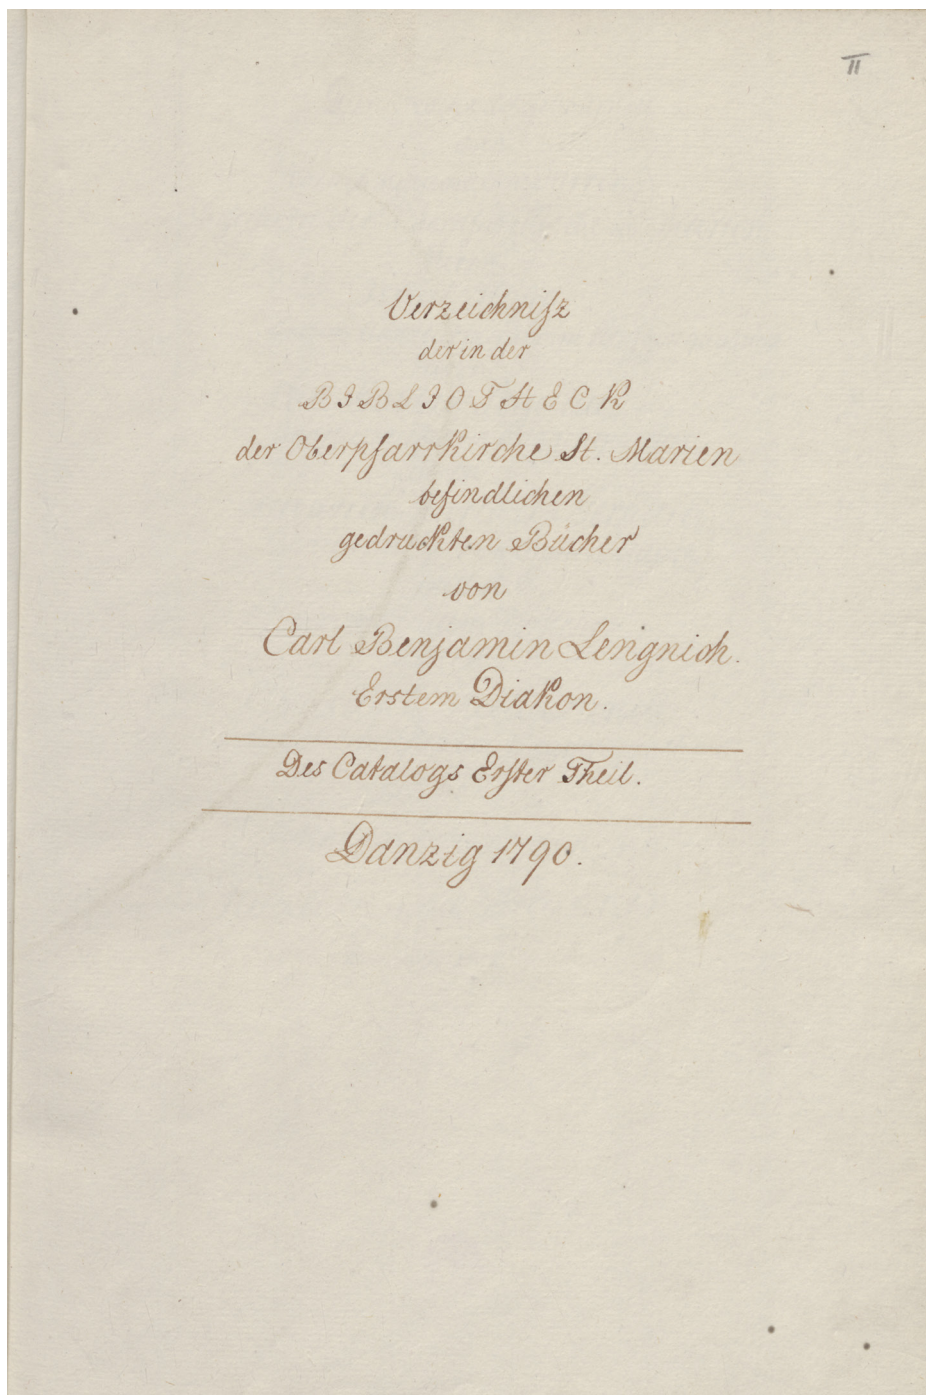 II
Verzeichniſz
der in der
BIBLIOTHECK
der Oberpfarrkirche St. Marien
befindlichen
gedruckten Bücher
von
Carl Benjamin Lengnich.
Erstem Diakon.
Des Catalogs Erſter Theil.
Danzig 1790.